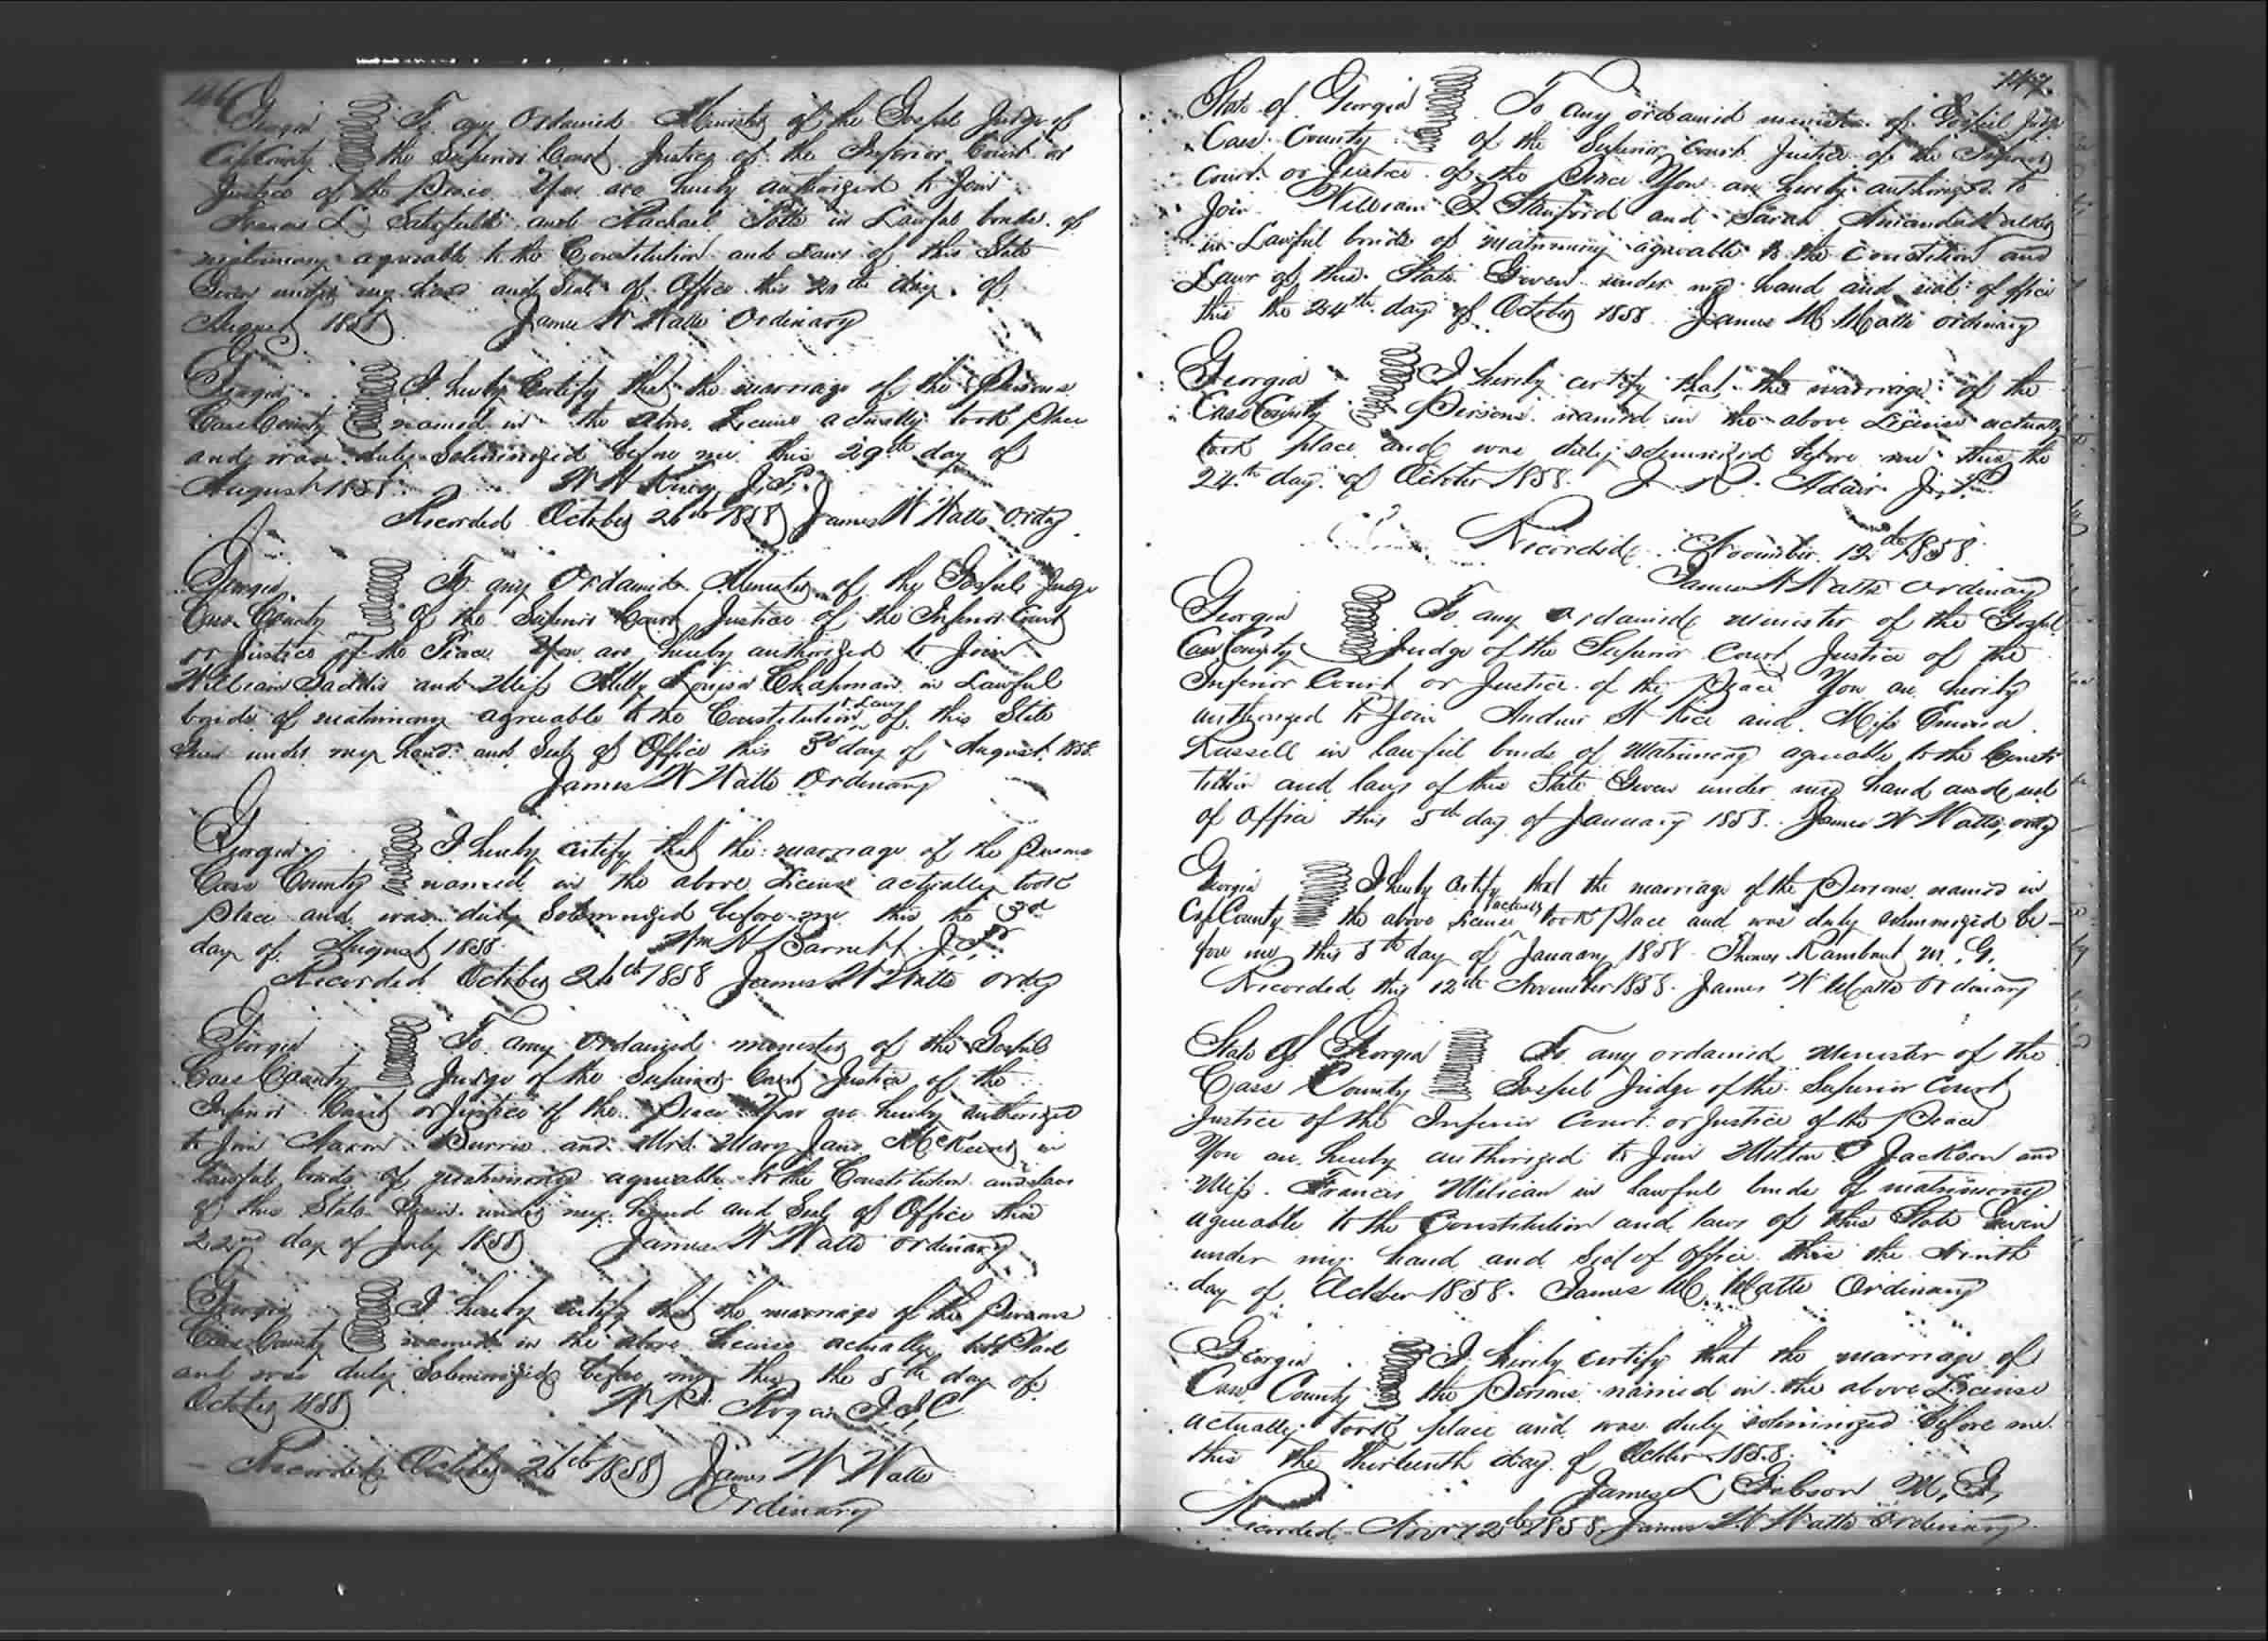 146
Georgia To any Ordained Minister of the Gospel Judge of
Cass County the Superior Court Justice of the Inferior Court or
Justice of the Peace You are hereby authorized to Join
Francis L and Rachael in Lawful bonds of
matrimony agreeable to the Constitution and Laws of this State
Given under my hand and Seal of Office this day of
August 1858 James W Watts Ordinary
Georgia I hereby Certify that the marriage of the Persons
Cass County named in the above License actually took Place
and was duly Solemnized before me this 29th day of
August 1858 W W King J,P,
Recorded October 26th 1858 James W Watts Ordy
Georgia To any Ordained Minister of the Gospel Judge
Cass County of the Superior Court Justice of the Inferior Court
or Justice of the Peace You are hereby authorized to Join
William Gaddis and Miss Milly Louisa Chapman in Lawful
bonds of matrimony agreeable to the Constitution & Laws of this State
Given under my hand and Seal of Office this 3rd day of August 1858
James W Watts Ordinary
Georgia I hereby certify that the marriage of the persons
Cass County named in the above License actually took
place and was duly Solemnized before me this the 3rd
day of August 1858 Wm H Barnett J.P.
Recorded October 26th 1858 James W Watts Ordy
Georgia To any Ordained minester of the Gospel
Cass County Judge of the Superior Court Justice of the
Inferior Court or Justice of the Peace You are hereby authorized
to Join Aaron Burris and Mrs Mary Jane in
lawful bonds of matrimony agreeable to the Constitution and laws
of this State Given under my hand and Seal of Office this
22nd day of July 1858 James W Watts Ordinary
Georgia I hereby certify that the marriage of the Persons
Cass County named in the above License actually took Place
and was duly Solemnized before me this the 5th day of
October 1858 Rogers J,I,C
Recorded October 26th 1858 James W Watts
Ordinary
147
State of Georgia To any ordained minister of Gospel Judge
Cass County of the Superior Court Justice of the Inferior
Court or Justice of the Peace You are hereby authorized to
Join William Stanford and Sarah Amanda
in Lawful bonds of matrimony agreeable to the Constition and
Laws of this State Given under my hand and seal of office
this the 24th day of October 1858 James W Watts ordinary
Georgia I hereby certify that the marriage of the
Cass County Persons named in the above License actually
took place and was duly solemnized before me this the
24th day of October 1858. J. R. Adair J.P.
Recorded November 12th 1858.
James W Watts Ordinary
Georgia To any ordained minister of the Gospel
Cass County Judge of the Superior Court Justice of the
Inferior Court or Justice of the Peace You are hereby
authorized to Join Andrew H Rice and Miss Emma
Russell in lawful bonds of Matrimony agreeable to the Consti
tution and laws of this State Given under my hand and seal
of office this 5th day of January 1858. James W Watts, ordy
Georgia I hereby certify that the marriage of the Persons named in
Cass County the above License actually took Place and was duly solemnized be-
fore me this 5th day of January 1858 Thomas Rambaut M.G.
Recorded this 12th November 1858. James W Watts Ordinary
State of Georgia To any ordained Minister of the
Cass County Gospel Judge of the Superior Court
Justice of the Inferior Court or Justice of the Peace
You are hereby authorized to Join Milton Jackson and
Miss Francis Milican in lawful bonds of matrimony
agreeable to the Constitution and laws of this State Given
under my hand and Seal of office this the Ninth
day of October 1858. James W Watts Ordinary
Georgia I hereby certify that the marriage of
Cass County the Persons named in the above License
actually took place and was duly solemnized before me
this the thirteenth day of October 1858.
James L Gibson M,G,
Recorded Novr 12th 1858 James W Watts Ordinary